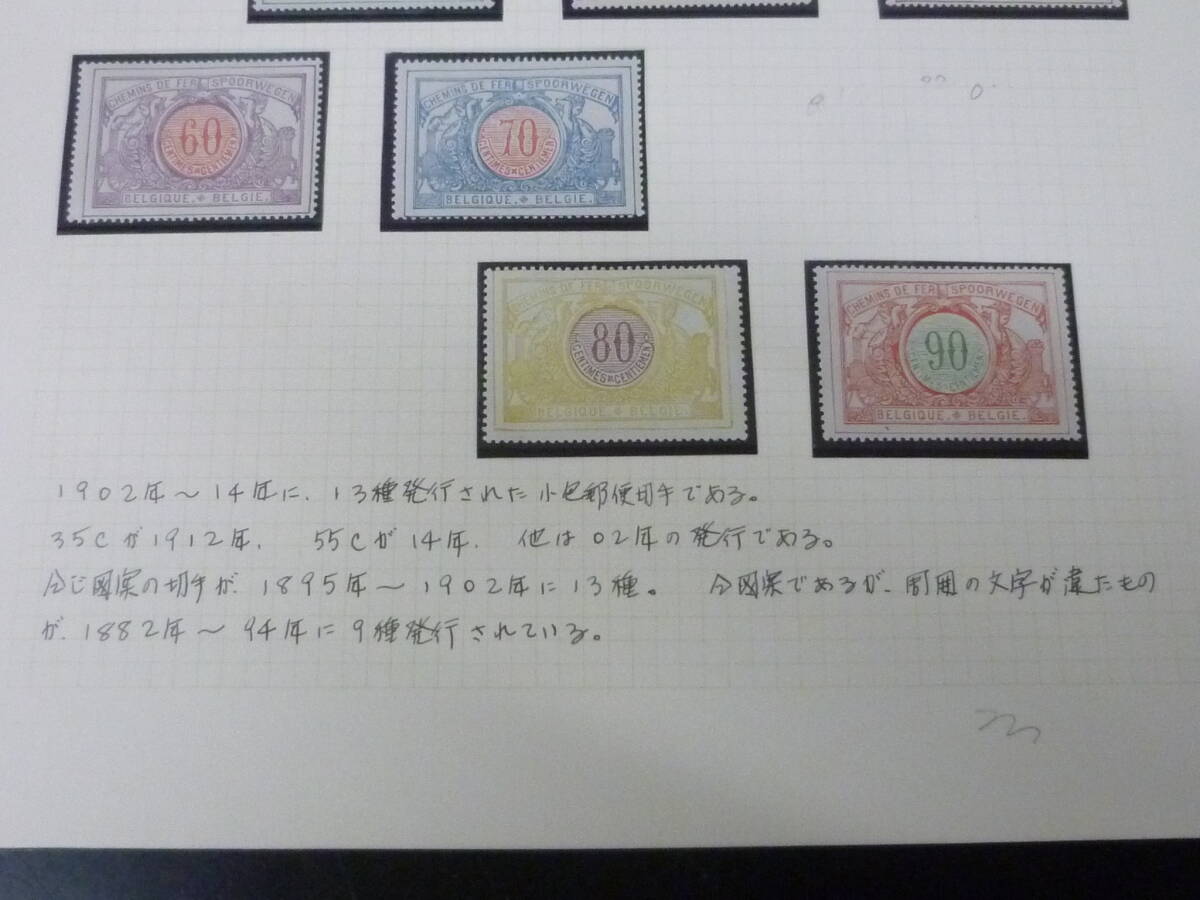 CHEMINS DE FER SPOORWEGEN
60
CENTIMES CENTIEMEN
BELGIQUE. BELGIE.
CHEMINS DE FER SPOORWEGEN
70
CENTIMES CENTIEMEN
BELGIQUE. BELGIE.
CHEMINS DE FER SPOORWEGEN
80
CENTIMES CENTIEMEN
BELGIQUE. BELGIE.
CHEMINS DE FER SPOORWEGEN
90
CENTIMES CENTIEMEN
BELGIQUE. BELGIE.
1902年～14年に、13種発行された小包郵便切手である。
35Cが1912年、 55Cが14年、 他は02年の発行である。
仝じ図案の切手が、1895年～1902年に13種。 仝図案であるが、周囲の文字が違たもの
が、1882年～94年に9種発行されている。